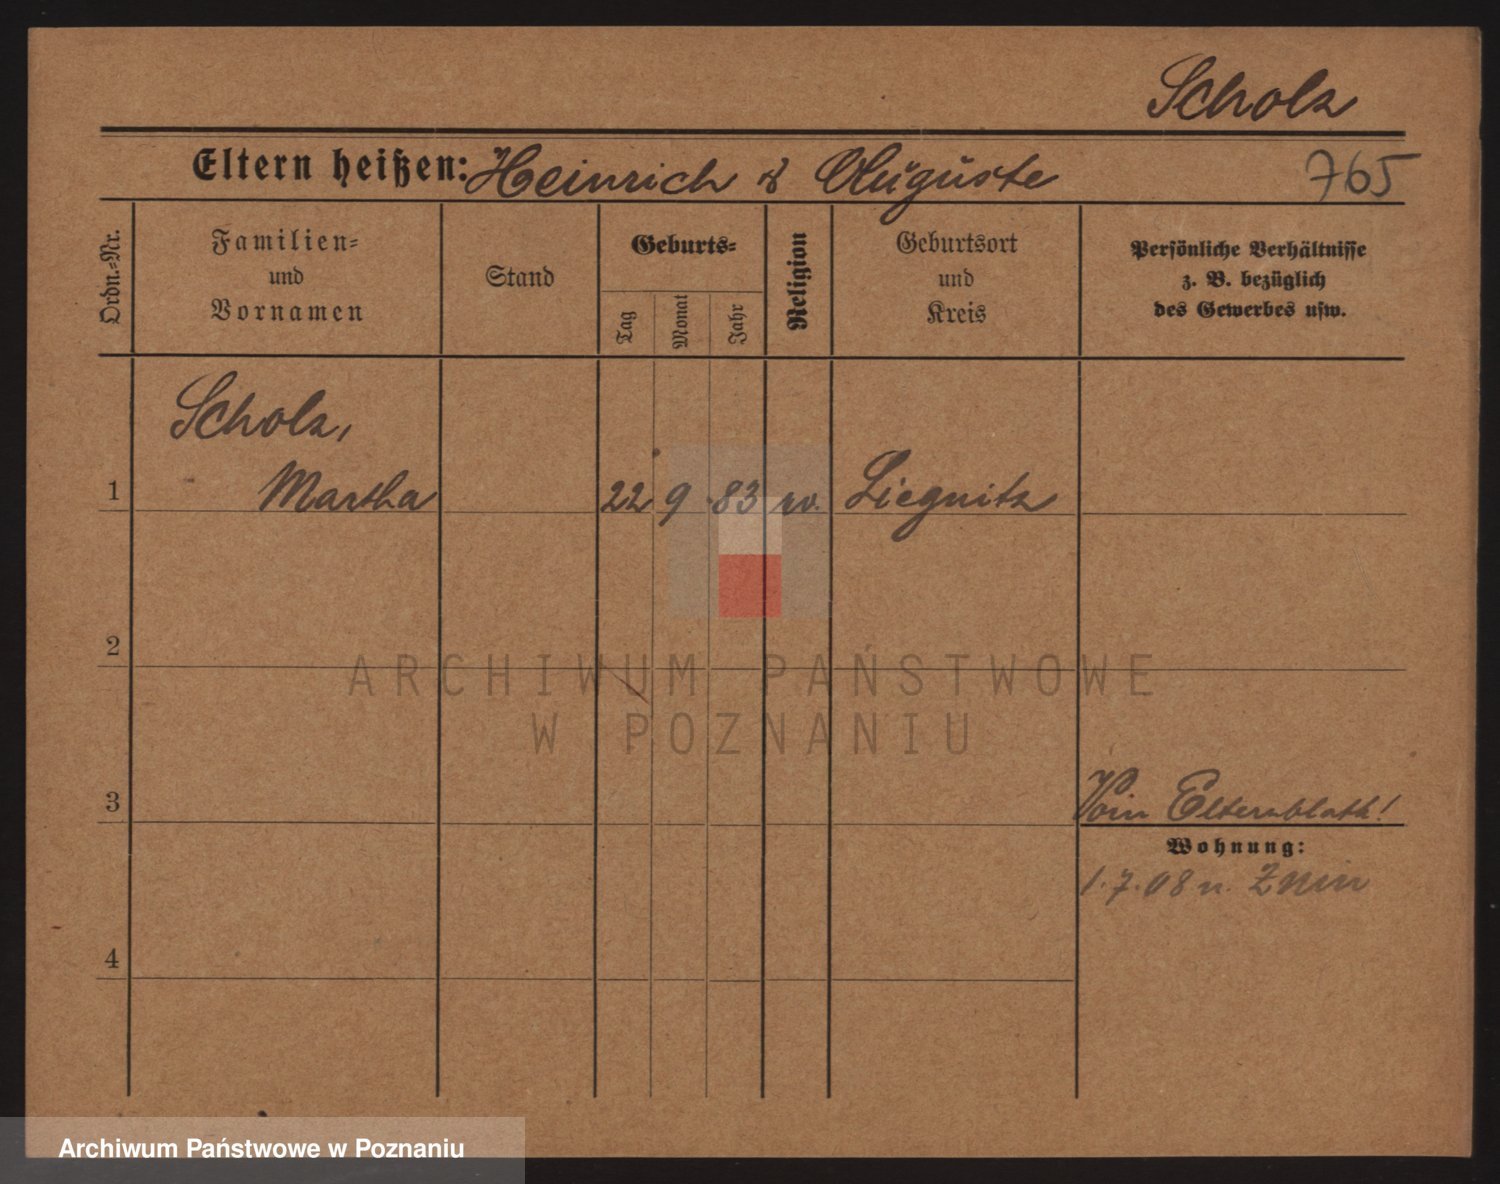 Scholz
Eltern heißen: Heinrich & Auguste
765
Ordn.-Nr.
Familien-
und
Vornamen
Stand
Geburts-
Tag
Monat
Jahr
Religion
Geburtsort
und
Kreis
Persönliche Verhältnisse
z. B. bezüglich
des Gewerbes usw.
Scholz,
1 Martha 22 9 83 Liegnitz
2
ARCHIWUM PAŃSTWOWE
W POZNANIU
3 Elternblatt!
Wohnung:
1.7.08 n. Znin
4
Archiwum Państwowe w Poznaniu